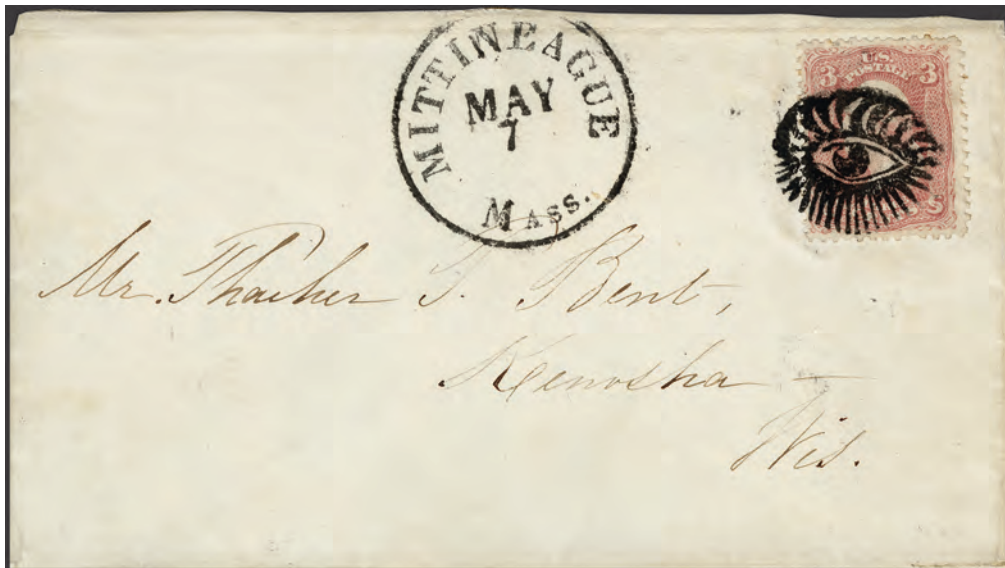 MITTINEAGUE
MAY
7
MASS.
U.S.
POSTAGE
3 3
S
Mr. Thacher T. Bent,
Kenosha –
Wis.